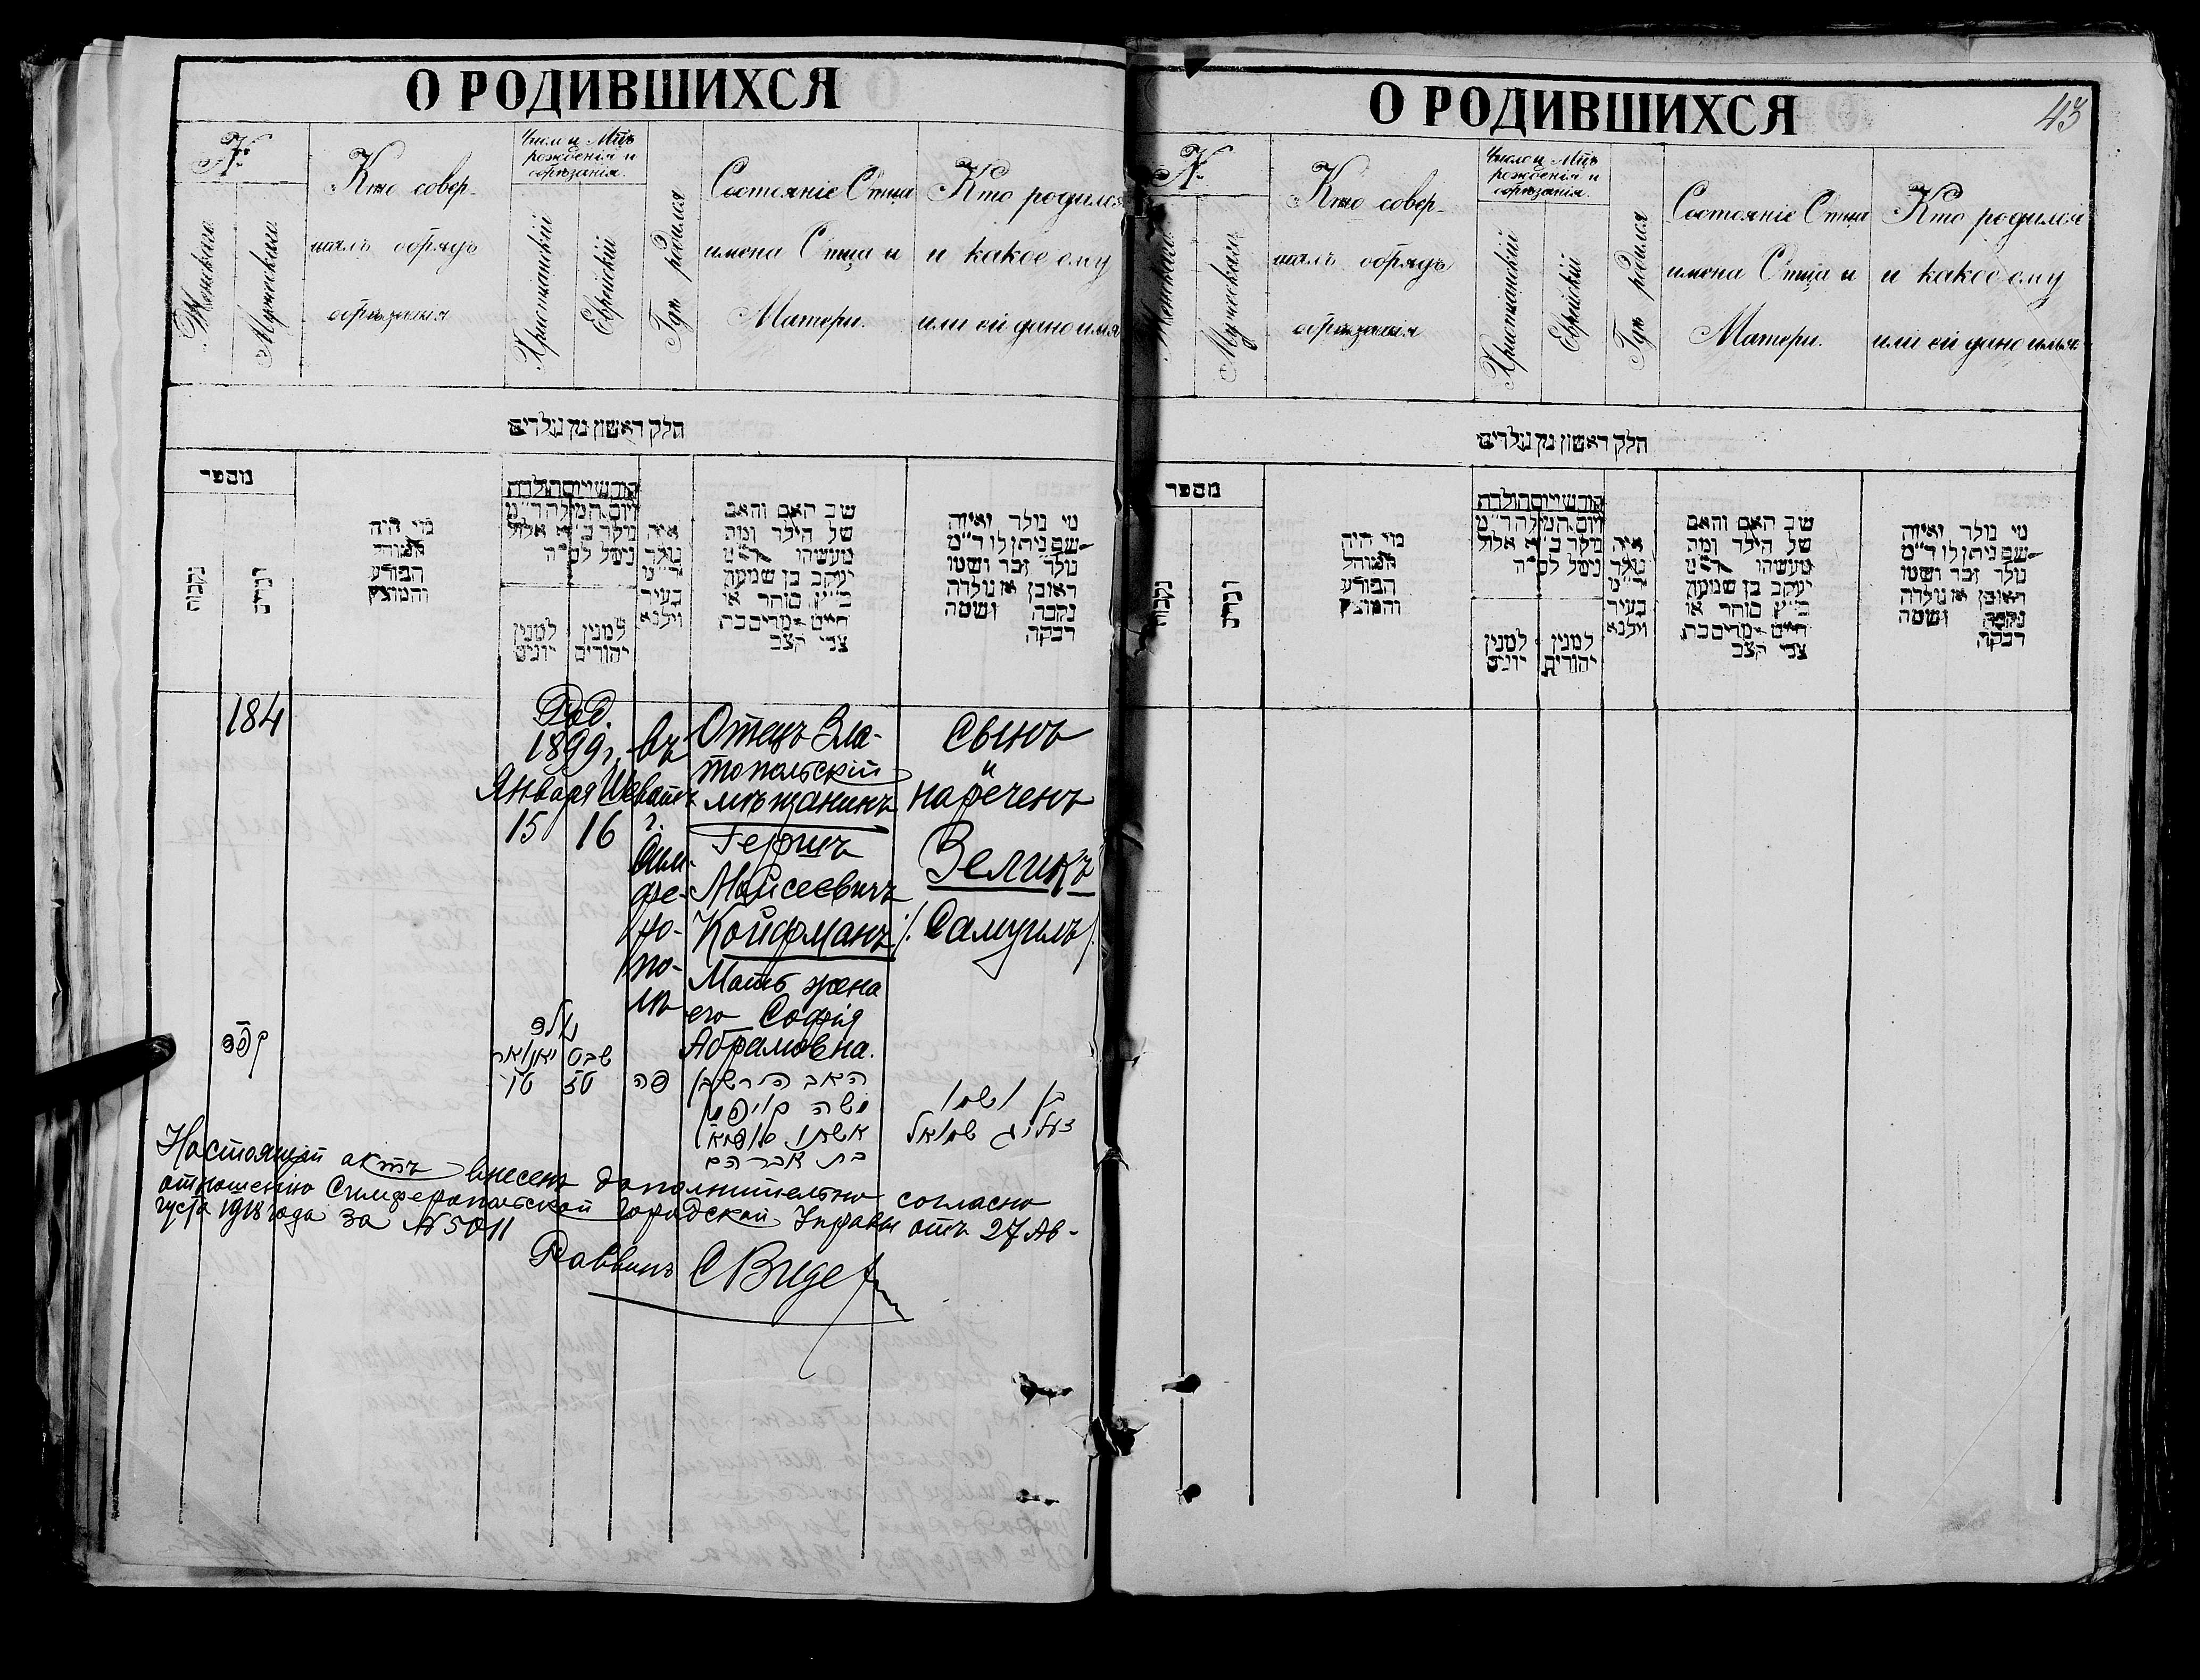 О РОДИВШИХСЯ
№
Женскаго
Мужескаго
Кто совер-
шалъ обрядъ
обрѣзанія
Число и Мѣц
рожденія и
обрѣзанія.
Христіанскій
Еврейскій
Гдѣ родился
Состояніе Отца
имена Отца и
Матери.
Кто родился
и какое ему
или ей дано имя
חלק ראשון מן נולדים
מספר
נקבות
מי היה
המוהל
הפורע
והמוצץ
למנין
יונים
למנין
יהודים
איה
נולד
בעיר
ווילנא
שם האם והאב
של הילד ומה
יעקב בן שמעון
כ״ץ סוחר או
חייט מרים בת
צבי קצב
מי נולד ואיזה
שם ניתן לו ד״מ
נולד זכר ושמו
ראובן או נולדה
נקבה ושמה
רבקה
184
Род.
1899 г.
Января Шеватъ
15 16
въ
г.
Сим-
фе-
ро-
по-
лѣ
Отецъ Зла-
топольскій
мѣщанинъ
Гершъ
Мойсеевичъ
Койфманъ
Мать жена
его Софія
Абрамовна.
сынъ
и
нареченъ
Зеликъ
/. Самуилъ /.
קפד
יאנואר שבט
טו טז
פה
האב הירש בן
משה קויפמן
אשתו סופיא
בת אברהם
בן ושמו
זעליג שמואל
Настоящій актъ внесенъ дополнительно согласно
отношенію Симферопольской Городской Управы отъ 27 Ав-
густа 1918 года за № 5011
Раввинъ
О РОДИВШИХСЯ
43
№
Женскаго
Мужескаго
Кто совер-
шалъ обрядъ
обрѣзанія
Число и Мѣц
рожденія и
обрѣзанія.
Христіанскій
Еврейскій
Гдѣ родился
Состояніе Отца
имена Отца и
Матери.
Кто родился
и какое ему
или ей дано имя
חלק ראשון מן נולדים
מספר
נקבות
מי היה
המוהל
הפורע
והמוצץ
למנין
יונים
למנין
יהודים
איה
נולד
בעיר
ווילנא
שם האם והאב
של הילד ומה
יעקב בן שמעון
כ״ץ סוחר או
חייט מרים בת
צבי קצב
מי נולד ואיזה
שם ניתן לו ד״מ
נולד זכר ושמו
ראובן או נולדה
נקבה ושמה
רבקה